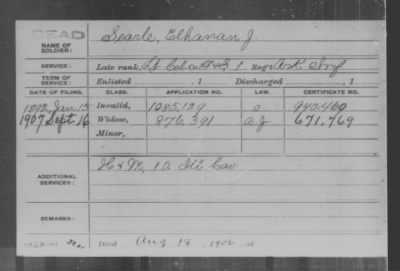 DEAD
NAME OF SOLDIER: Searle, Elhanan J.
SERVICE: Late rank, Lt Col Co F&S, 1 Reg't Ark Inf
TERM OF SERVICE: Enlisted , 1 Discharged , 1
DATE OF FILING. CLASS. APPLICATION NO. LAW. CERTIFICATE NO.
1892 Jan 15 Invalid, 1085,139 940.460
1907 Sept 16 Widow, 876,391 671,769
Minor,
ADDITIONAL SERVICES: H & M, 10 Ill Cav
REMARKS:
Died Aug 18, 1906, at